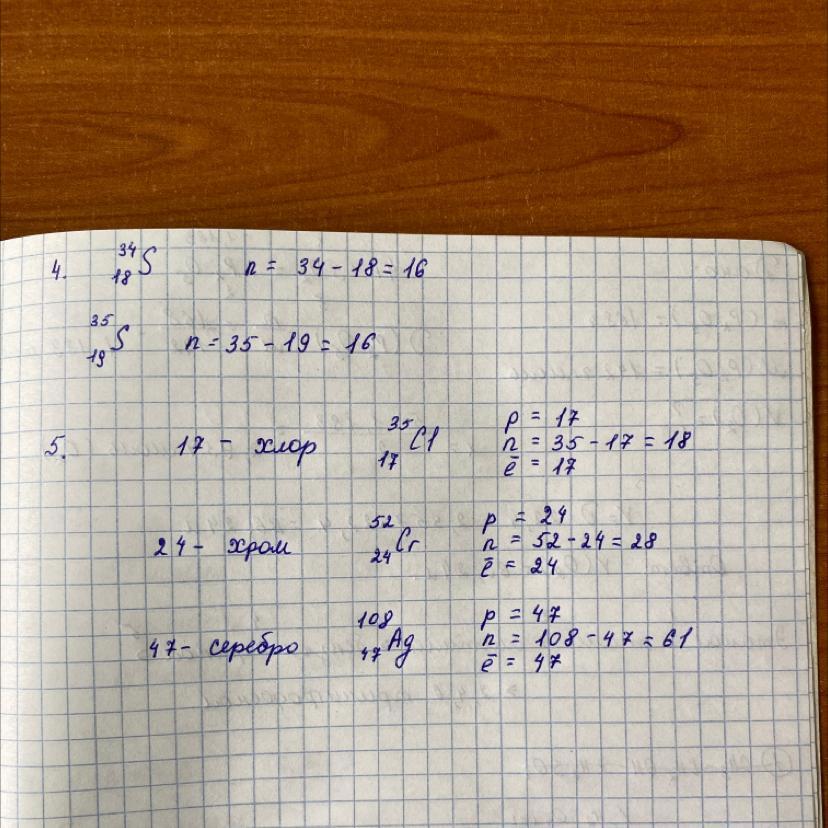 4. ³⁴₁₈S n = 34 - 18 = 16
³⁵₁₉S n = 35 - 19 = 16
5. 17 - хлор ³⁵₁₇Cl p = 17
n = 35 - 17 = 18
ē = 17
24 - хром ⁵²₂₄Cr p = 24
n = 52 - 24 = 28
ē = 24
47 - серебро ¹⁰⁸₄₇Ag p = 47
n = 108 - 47 = 61
ē = 47